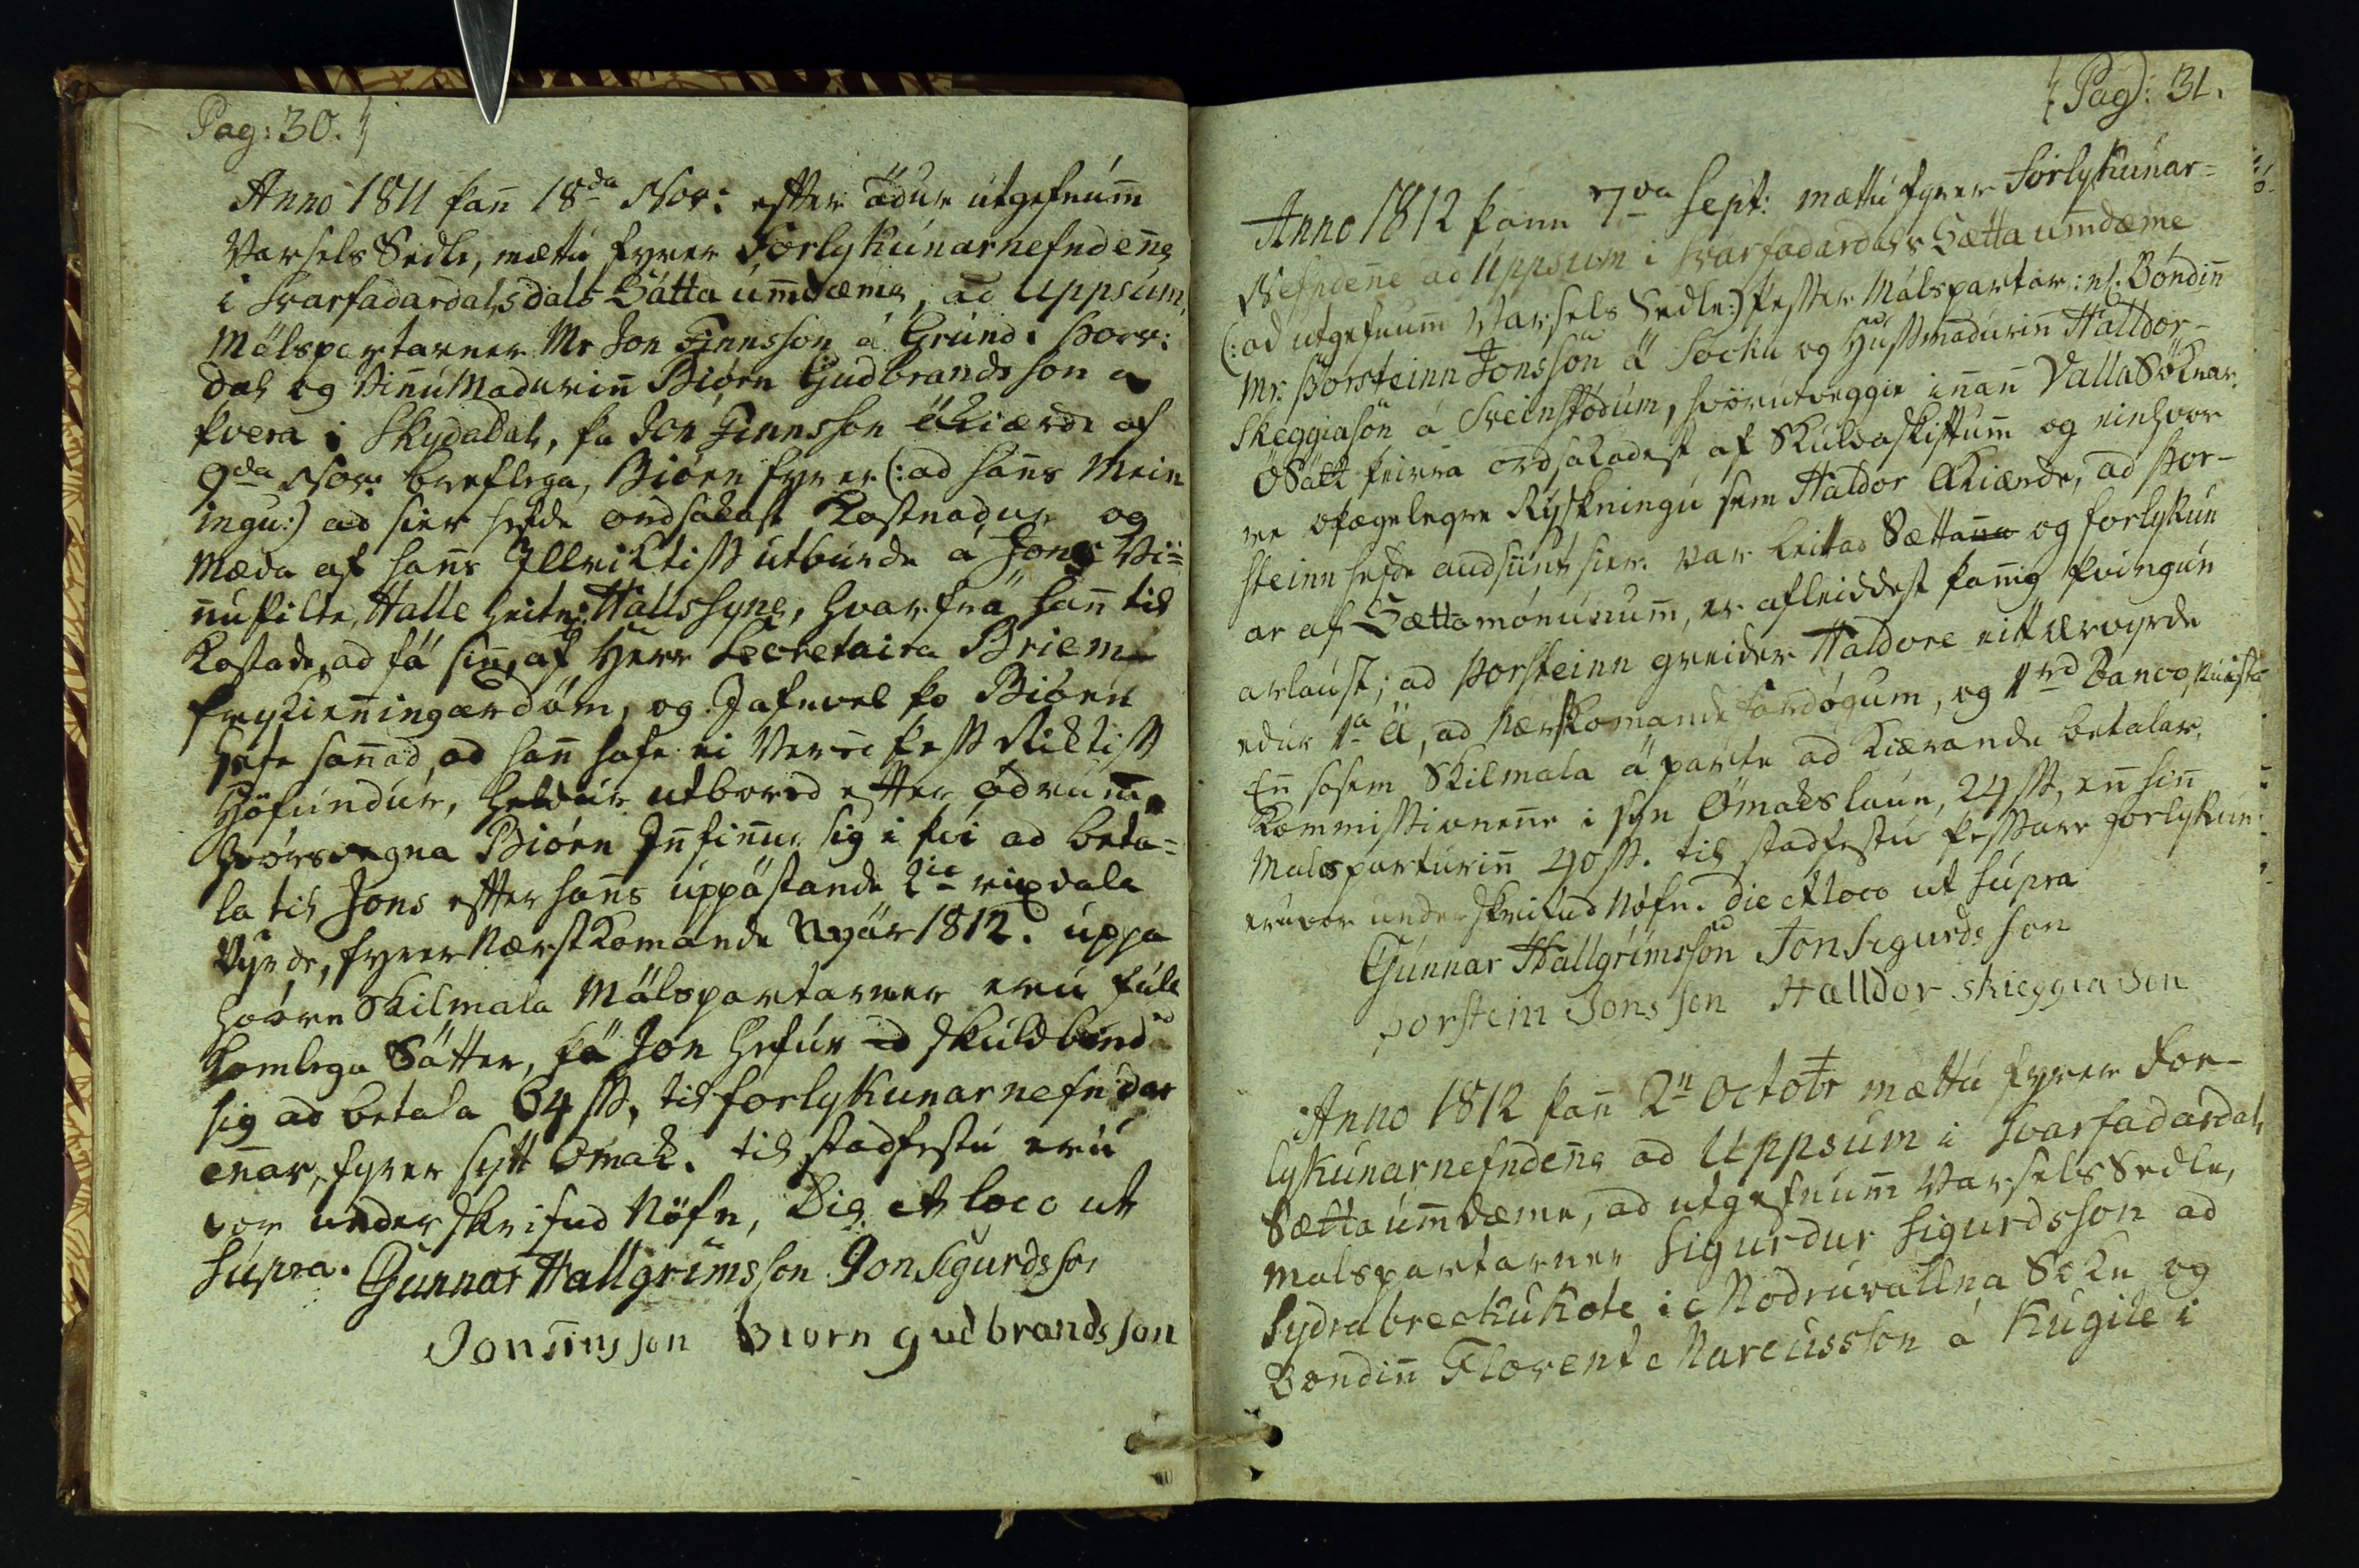 Pag: 30.
Anno 1811 þan̄ 18da Nov: efter ádur útgefnum̄
Varsels Sedle, mættu fyrer Forlykúnarnefnden̄e
i Svarfadardalsdals Sátta úm̄dæme, ad Uppsúm,
Málspartarner Mr Jon Finnsson á Grúnd i Þorv:
dal og Vin̄úmadurin̄ Biórn Gudbrandsson a
Þvera i Skydadal, þa Jon Finnsson ákiærde af
9da Nov: breflega, Biórn fyrer (: ad han̄s Mein
ingu:) ad sier hefde ordsakast Kostnadur og
Mæda af han̄s Illviktiss útbúrde á Jons Vi=
n̄upilte, Halle heitn: Hallssyne, hvar frá han̄ til
Kostade, ad fá sin̄, af Herr Secretaira Briem
fryKien̄ingardóm, og Jafnvel þo Biórn
Hafe san̄ad, ad han̄ hafe ei Vered þess Riktiss
Höfundúr, heldúr útbored efter ödrum̄
hvörsvegna Biórn In̄fin̄ur sig i þvi ad beta=
la til Jons efter han̄s uppástande 2ia rixdala
Vyrde, fyrer Nærstkomande Nyár 1812. uppa
hvörn Skilmala Málspartarner erú full
komlega Sätter, þá Jon Hefúr skúldbúnd
sig ad betala 64 ss, til forlykunarnefndar
en̄ar, fyrer sytt Ómak. til stadfestú erú
vor underskrifud Nöfn, Die et loco ut
súpra. Gunnar Hallgrimsson Jon Sigurdsson
Jon Finsson Biorn gudbrandsson
Pag: 31.
Anno 1812 þann 7da Sept: mættú fyrer Forlykúnar=
Nefnden̄e ad Uppsum i Svarfadardals Sættaum̄dæme
(: ad utgefnum̄ Varsels Sedle:) þesser Málspartar: nl. Bóndin̄
Mr. Þorsteinn Jonsson á Socku og Hússmadurin̄ Halldór
Skeggiason á Sveinstödum, hvörutveggie in̄an̄ VallaSóknar.
ÓSátt þeirra ordsakadest af Skúldaskiptum̄ og einhvor
re óþægelegre Ryskningú sem Haldor ákiærde, ad Þor-
steinn hefde audsúnt sier. var leitad Sætta og forlykun
ar af Sættamönúnum, er afleiddest þan̄ig þvingún
arlaúst; ad Þorsteinn greider Haldore eitt ærvyrde
edur 1a Á, ad Nærstkomande fardögum, og 1rd Banco,
En̄ sosem Skilmala á parte ad kiærande betalar,
Kommissionen̄e i syn Ómakslaun, 24 ss, en̄ hin̄
Malsparturin̄ 40 ss. til stadfestú þessare Forlykun
eru vor underskrifud Nöfn. Die et loco ut súpra
Gúnnar Hallgrimsson Jon Sigurdsson
Þorstein Jonsson Halldor Skieggiason
Anno 1812 þan̄ 2n Octobr mættú fyrer For-
lykúnarnefnden̄e ad Uppsum i Svarfadardals
Sættaúm̄dæme, ad utgefnúm̄ VarselsSedle,
Malspartarner Sigurdur Sigurdsson ad
Sydrabreckúkote i Modruvallna Sokn og
Bondin̄ Florent Marcússon á Kúgile i